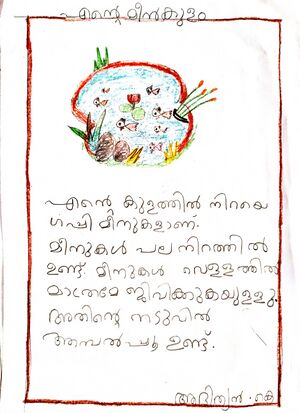 എന്റെ മീൻകുളം
എന്റെ കുളത്തിൽ നിറയെ
ഗപ്പി മീനുകളാണ്.
മീനുകൾ പല നിറത്തിൽ
ഉണ്ട്. മീനുകൾ വെള്ളത്തിൽ
മാത്രമേ ജീവിക്കുകയുള്ളു.
അതിന്റെ നടുവിൽ
ആമ്പൽപ്പൂ ഉണ്ട്.
ആദിത്യൻ . കെ